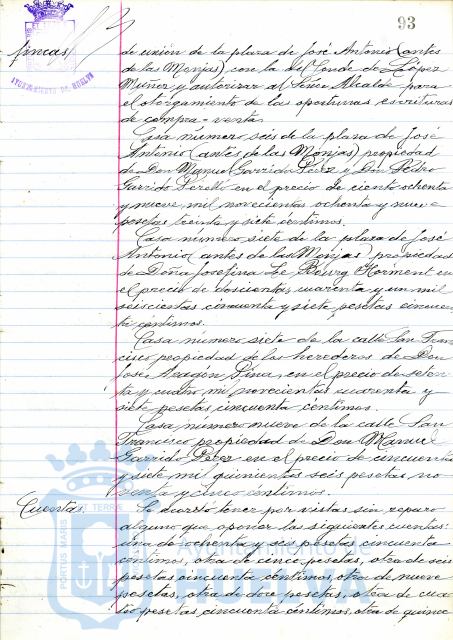 93
fincas
AYUNTAMIENTO DE HUELVA
de unión de la plaza de José Antonio (antes
de las Monjas) con la del Conde de López
Muñoz y autorizar al Señor Alcalde para
el otorgamiento de las oportunas escrituras
de compra-venta.
Casa número seis de la plaza de José
Antonio (antes de las Monjas) propiedad
de Don Manuel Garrido Perez y Don Pedro
Garrido Perelló en el precio de ciento ochenta
y nueve mil novecientas ochenta y nueve
pesetas treinta y siete céntimos.
Casa número siete de la plaza de José
Antonio antes de las Monjas propiedad
de Doña Josefina Le Bourg en
el precio de doscientas cuarenta y un mil
seiscientas cincuenta y siete pesetas cincuen
ta céntimos.
Casa número siete de la calle San Fran
cisco propiedad de los herederos de Don
José Aragón en el precio de seten
ta y cuatro mil novecientas cuarenta y
siete pesetas cincuenta céntimos.
Casa número nueve de la calle San
Francisco propiedad de Don Manuel
Garrido Perez en el precio de cincuenta
y siete mil quinientas seis pesetas no
venta y cinco céntimos.
Cuentas
Se acordó tener por vistas sin reparo
alguno que oponer las siguientes cuentas:
una de ochenta y seis pesetas cincuenta
céntimos, otra de cinco pesetas, otra de seis
pesetas cincuenta céntimos, otra de nueve
pesetas, otra de doce pesetas, otra de cua
tro pesetas cincuenta céntimos, otra de quince
PORTUS MARIS ET TERRE CUSTODIA
Ayuntamiento de
HUELVA